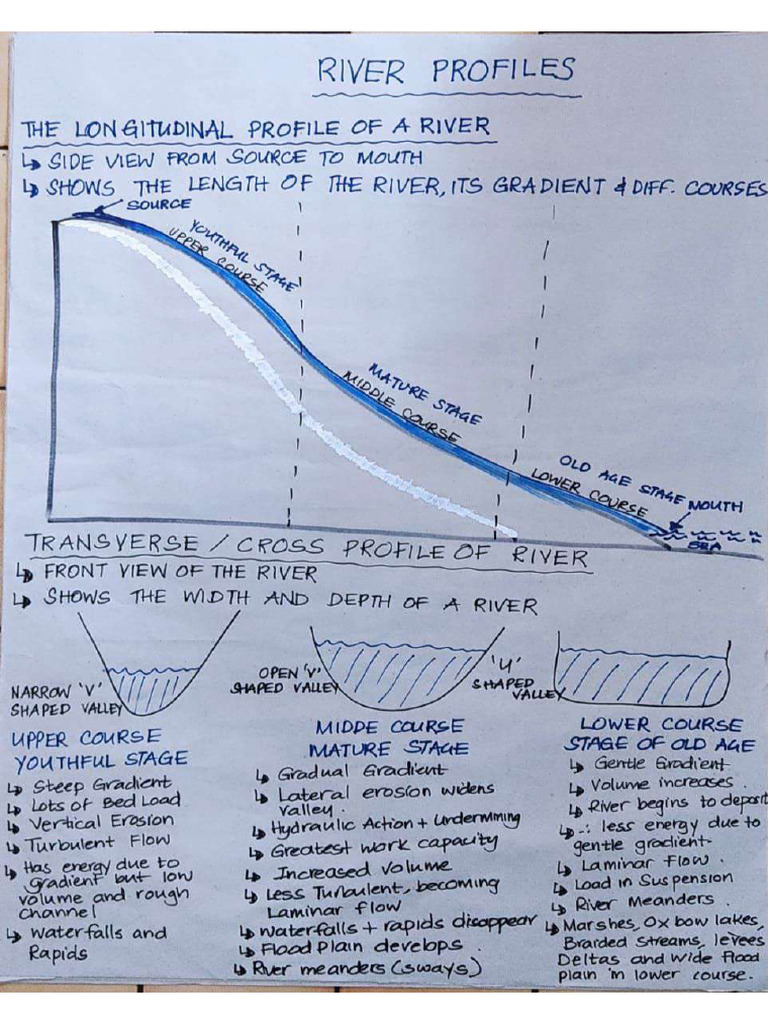 RIVER PROFILES
THE LONGITUDINAL PROFILE OF A RIVER
↳ SIDE VIEW FROM SOURCE TO MOUTH
↳ SHOWS THE LENGTH OF THE RIVER, ITS GRADIENT & DIFF. COURSES
SOURCE
YOUTHFUL STAGE
UPPER COURSE
MATURE STAGE
MIDDLE COURSE
OLD AGE STAGE
LOWER COURSE
MOUTH
SEA
TRANSVERSE / CROSS PROFILE OF RIVER
↳ FRONT VIEW OF THE RIVER
↳ SHOWS THE WIDTH AND DEPTH OF A RIVER
NARROW 'V'
SHAPED VALLEY
OPEN 'V'
SHAPED VALLEY
'U'
SHAPED
VALLEY
UPPER COURSE
YOUTHFUL STAGE
↳ Steep Gradient
↳ Lots of Bed Load
↳ Vertical Erosion
↳ Turbulent Flow
↳ Has energy due to
gradient but low
volume and rough
channel
↳ Waterfalls and
Rapids
MIDDE COURSE
MATURE STAGE
↳ Gradual Gradient
↳ Lateral erosion widens
valley.
↳ Hydraulic Action + Undermining
↳ Greatest work capacity
↳ Increased volume
↳ Less Turbulent, becoming
Laminar flow
↳ Waterfalls + rapids disappear
↳ Flood Plain develops.
↳ River meanders (sways)
LOWER COURSE
STAGE OF OLD AGE
↳ Gentle Gradient
↳ Volume increases.
↳ River begins to deposit
↳ ∴ less energy due to
gentle gradient
↳ Laminar flow.
↳ Load in Suspension
↳ River Meanders.
↳ Marshes, Ox bow lakes,
Braided Streams, levees
Deltas and Wide flood
plain in lower course.